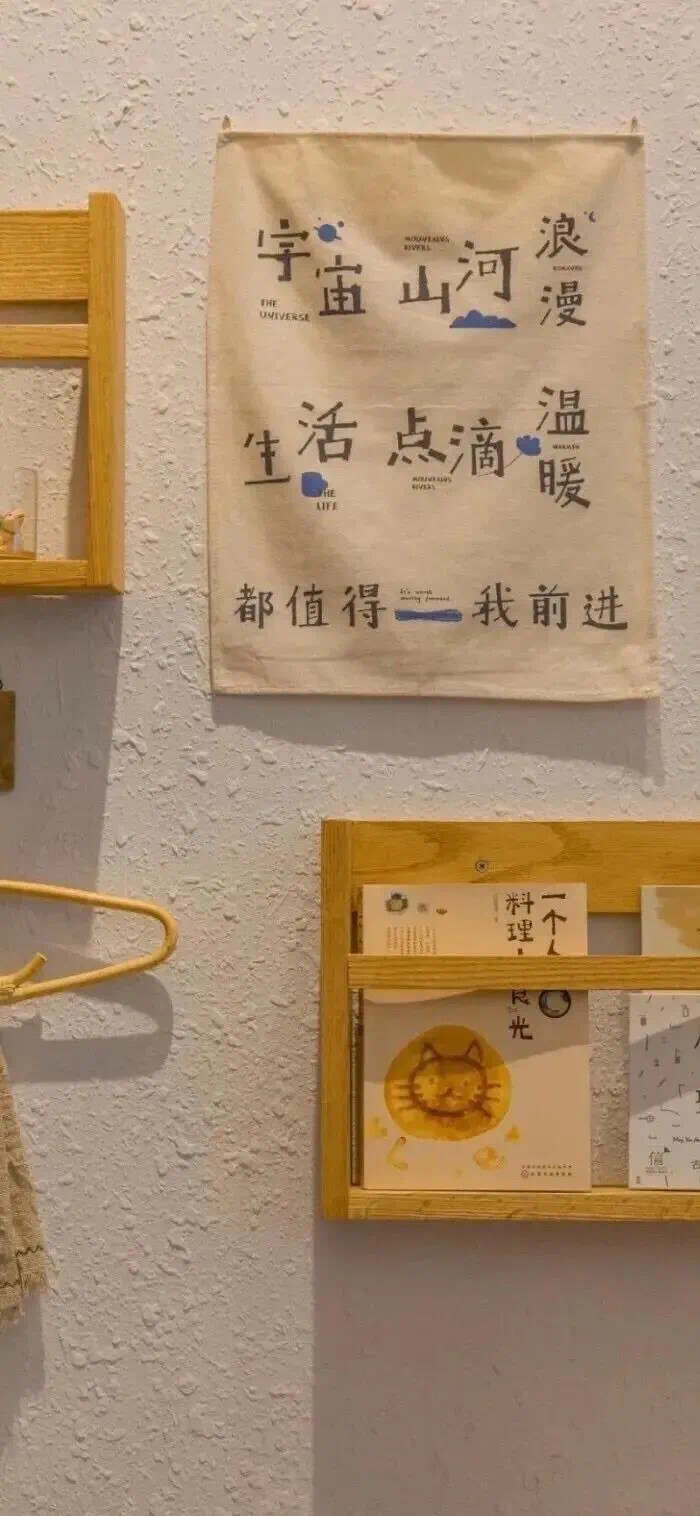 宇宙 山河 浪漫
THE
UNIVERSE
MOUNTAINS
RIVERS
生活 点滴 温暖
THE
LIFE
MOUNTAINS
RIVERS
都值得 我前进
It's worth
moving forward
一个人
料理 食光
信